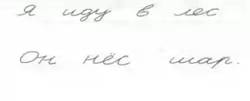 Я иду в лес
Он нёс шар.